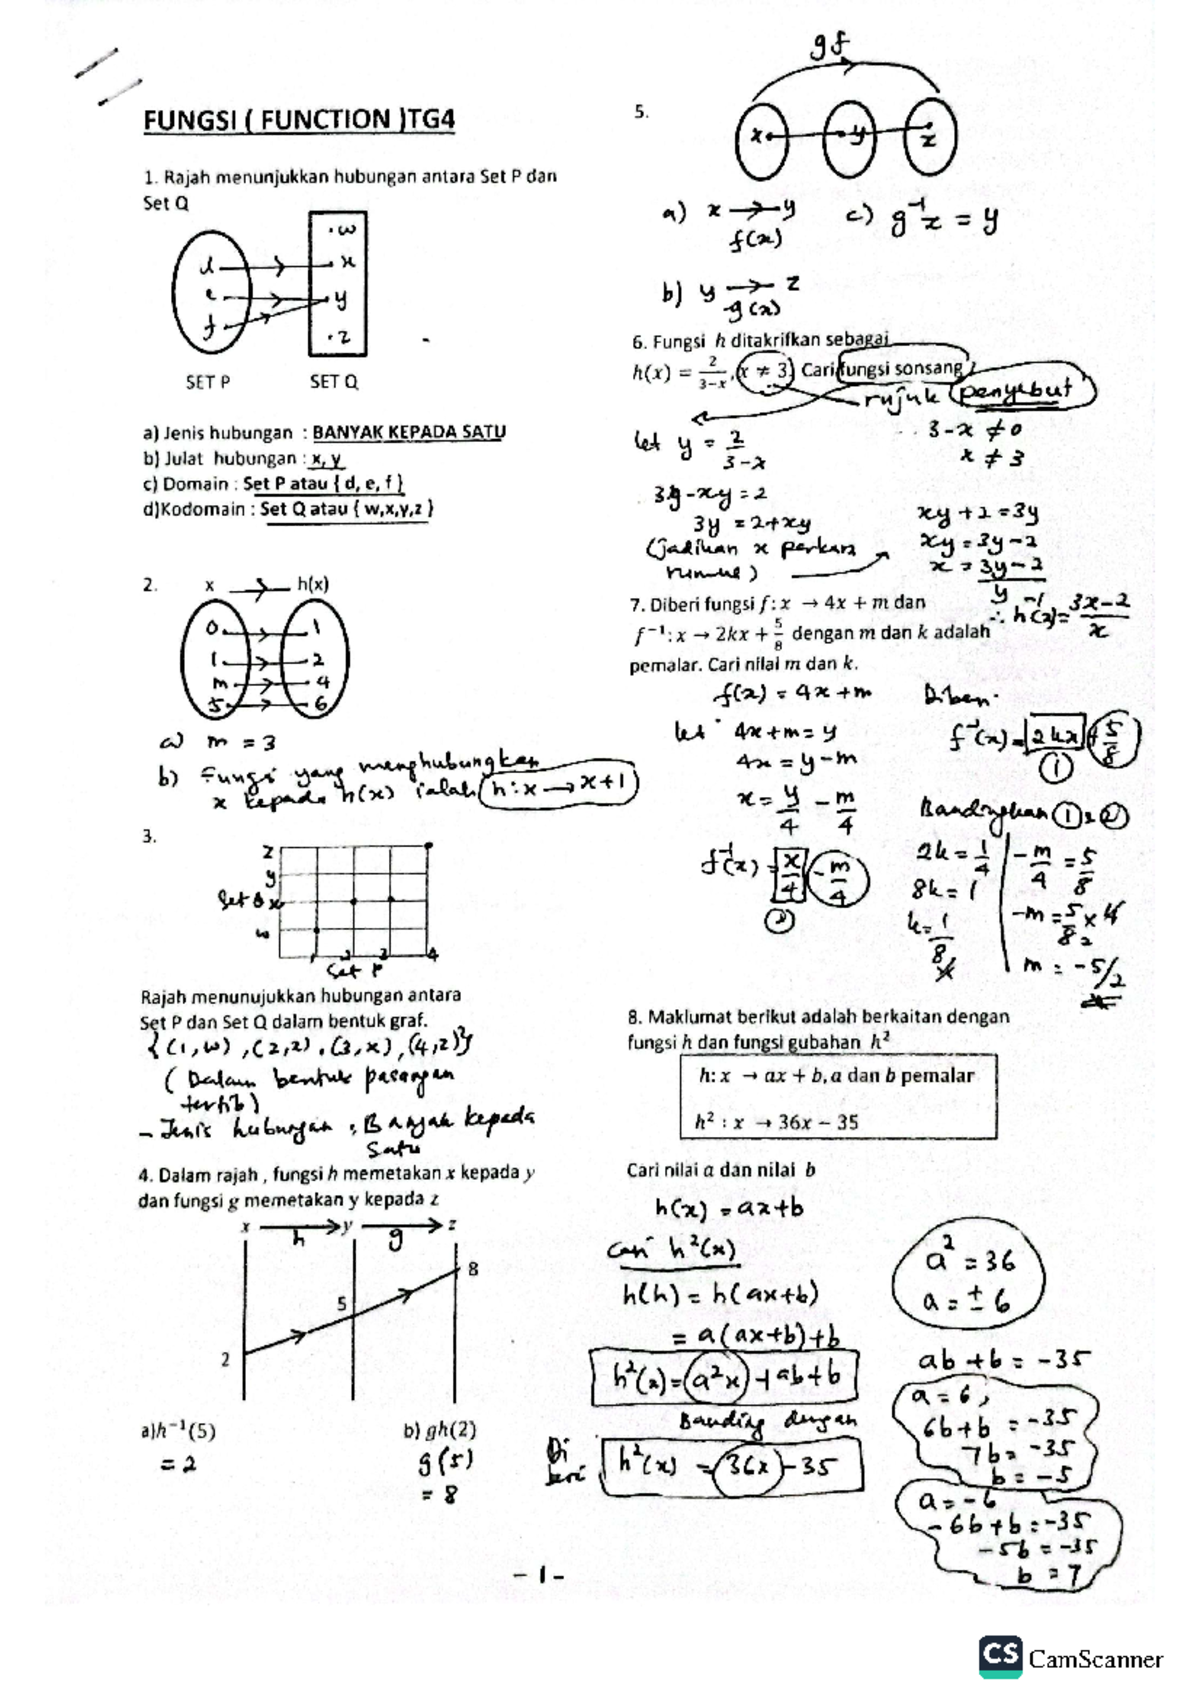 FUNGSI ( FUNCTION )TG4
1. Rajah menunjukkan hubungan antara Set P dan
Set Q
d
e
f
.w
.x
.y
.z
SET P
SET Q
a) Jenis hubungan : BANYAK KEPADA SATU
b) Julat hubungan : x, y
c) Domain : Set P atau { d, e, f }
d)Kodomain : Set Q atau { w,x,y,z }
2.
x → h(x)
0 1
1 2
m 4
5 6
a) m = 3
b) Fungsi yang menghubungkan
x kepada h(x) ialah h:x → x+1
3.
z
y
x
w
1 2 3 4
Set P
Rajah menunujukkan hubungan antara
Set P dan Set Q dalam bentuk graf.
{(1,w),(2,x),(3,x),(4,z)}
( Dalam bentuk pasangan
tertib)
- Jenis hubungan : Banyak kepada
Satu
4. Dalam rajah , fungsi h memetakan x kepada y
dan fungsi g memetakan y kepada z
x → y → z
h g
8
5
2
a)h⁻¹(5)
= 2
b) gh(2)
g(5)
= 8
5.
gf
x y z
a) x → y
f(x)
c) g⁻¹z = y
b) y → z
g(x)
6. Fungsi h ditakrifkan sebagai
h(x) = 2/(3−x), x ≠ 3. Cari fungsi sonsang
rujuk penyebut
3-x ≠ 0
x ≠ 3
let y = 2/(3-x)
3y-xy = 2
3y = 2+xy
(jadikan x perkara
rumus)
xy + 2 = 3y
xy = 3y-2
x = (3y-2)/y
∴ h⁻¹(x) = (3x-2)/x
7. Diberi fungsi f: x → 4x + m dan
f⁻¹: x → 2kx + 5/8 dengan m dan k adalah
pemalar. Cari nilai m dan k.
f(x) = 4x+m
let 4x+m = y
4x = y-m
x = y/4 - m/4
f⁻¹(x) = x/4 - m/4
②
Diberi
f⁻¹(x) = 2kx + 5/8
①
Bandingkan ① & ②
2k = 1/4
8k = 1
k = 1/8
-m/4 = 5/8
-m = 5/8 x 4
2
m = -5/2
8. Maklumat berikut adalah berkaitan dengan
fungsi h dan fungsi gubahan h²
h: x → ax + b, a dan b pemalar
h² : x → 36x − 35
Cari nilai a dan nilai b
h(x) = ax+b
cari h²(x)
h(h) = h(ax+b)
= a(ax+b)+b
h²(x) = a²x + ab+b
Banding dengan
Di beri h²(x) = 36x - 35
a² = 36
a = ± 6
ab + b = -35
a = 6,
6b+b = -35
7b = -35
b = -5
a = -6
-6b + b = -35
-5b = -35
b = 7
- 1 -
CS CamScanner